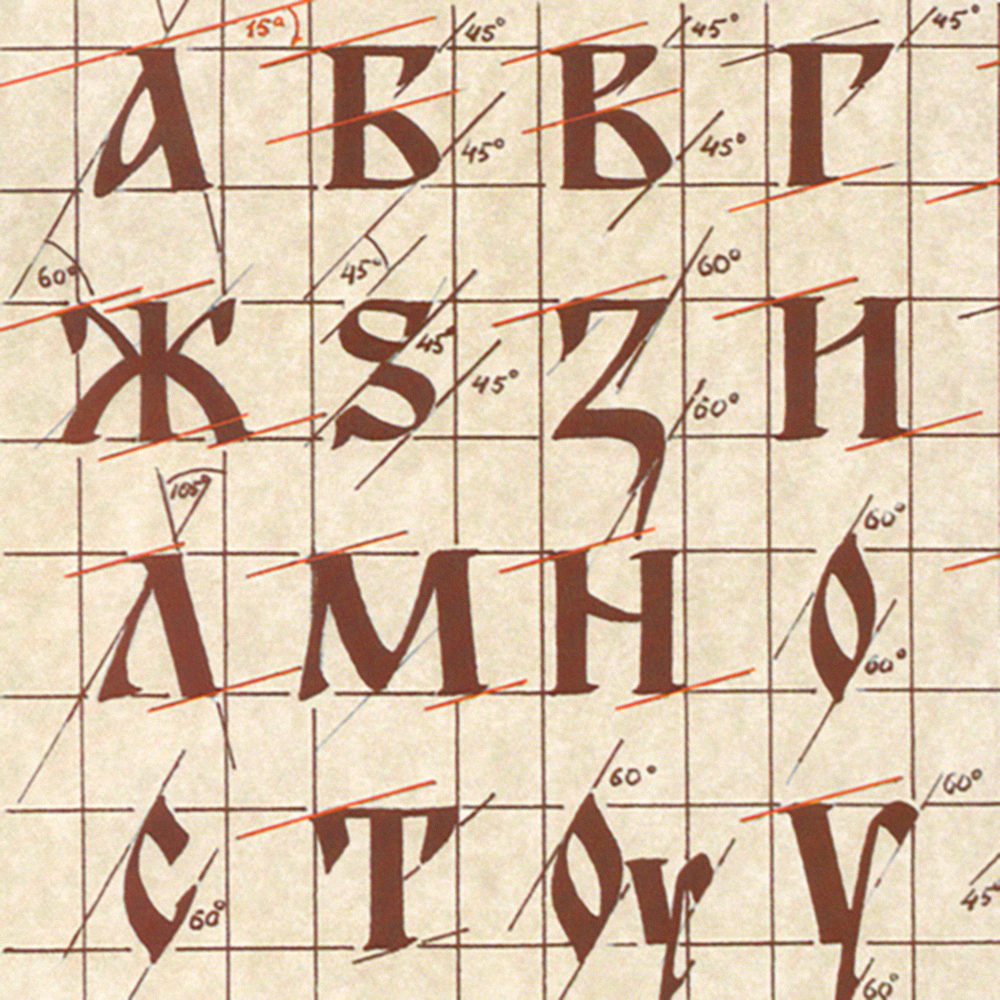 15° 45° 45° 45°
А Б В Г
45° 45°
60° 45° 60°
Ж Ѕ З И
45° 45° 60°
105° 60°
Л М Н О
60°
60° 60°
С Т Оу У
60° 45° 60°